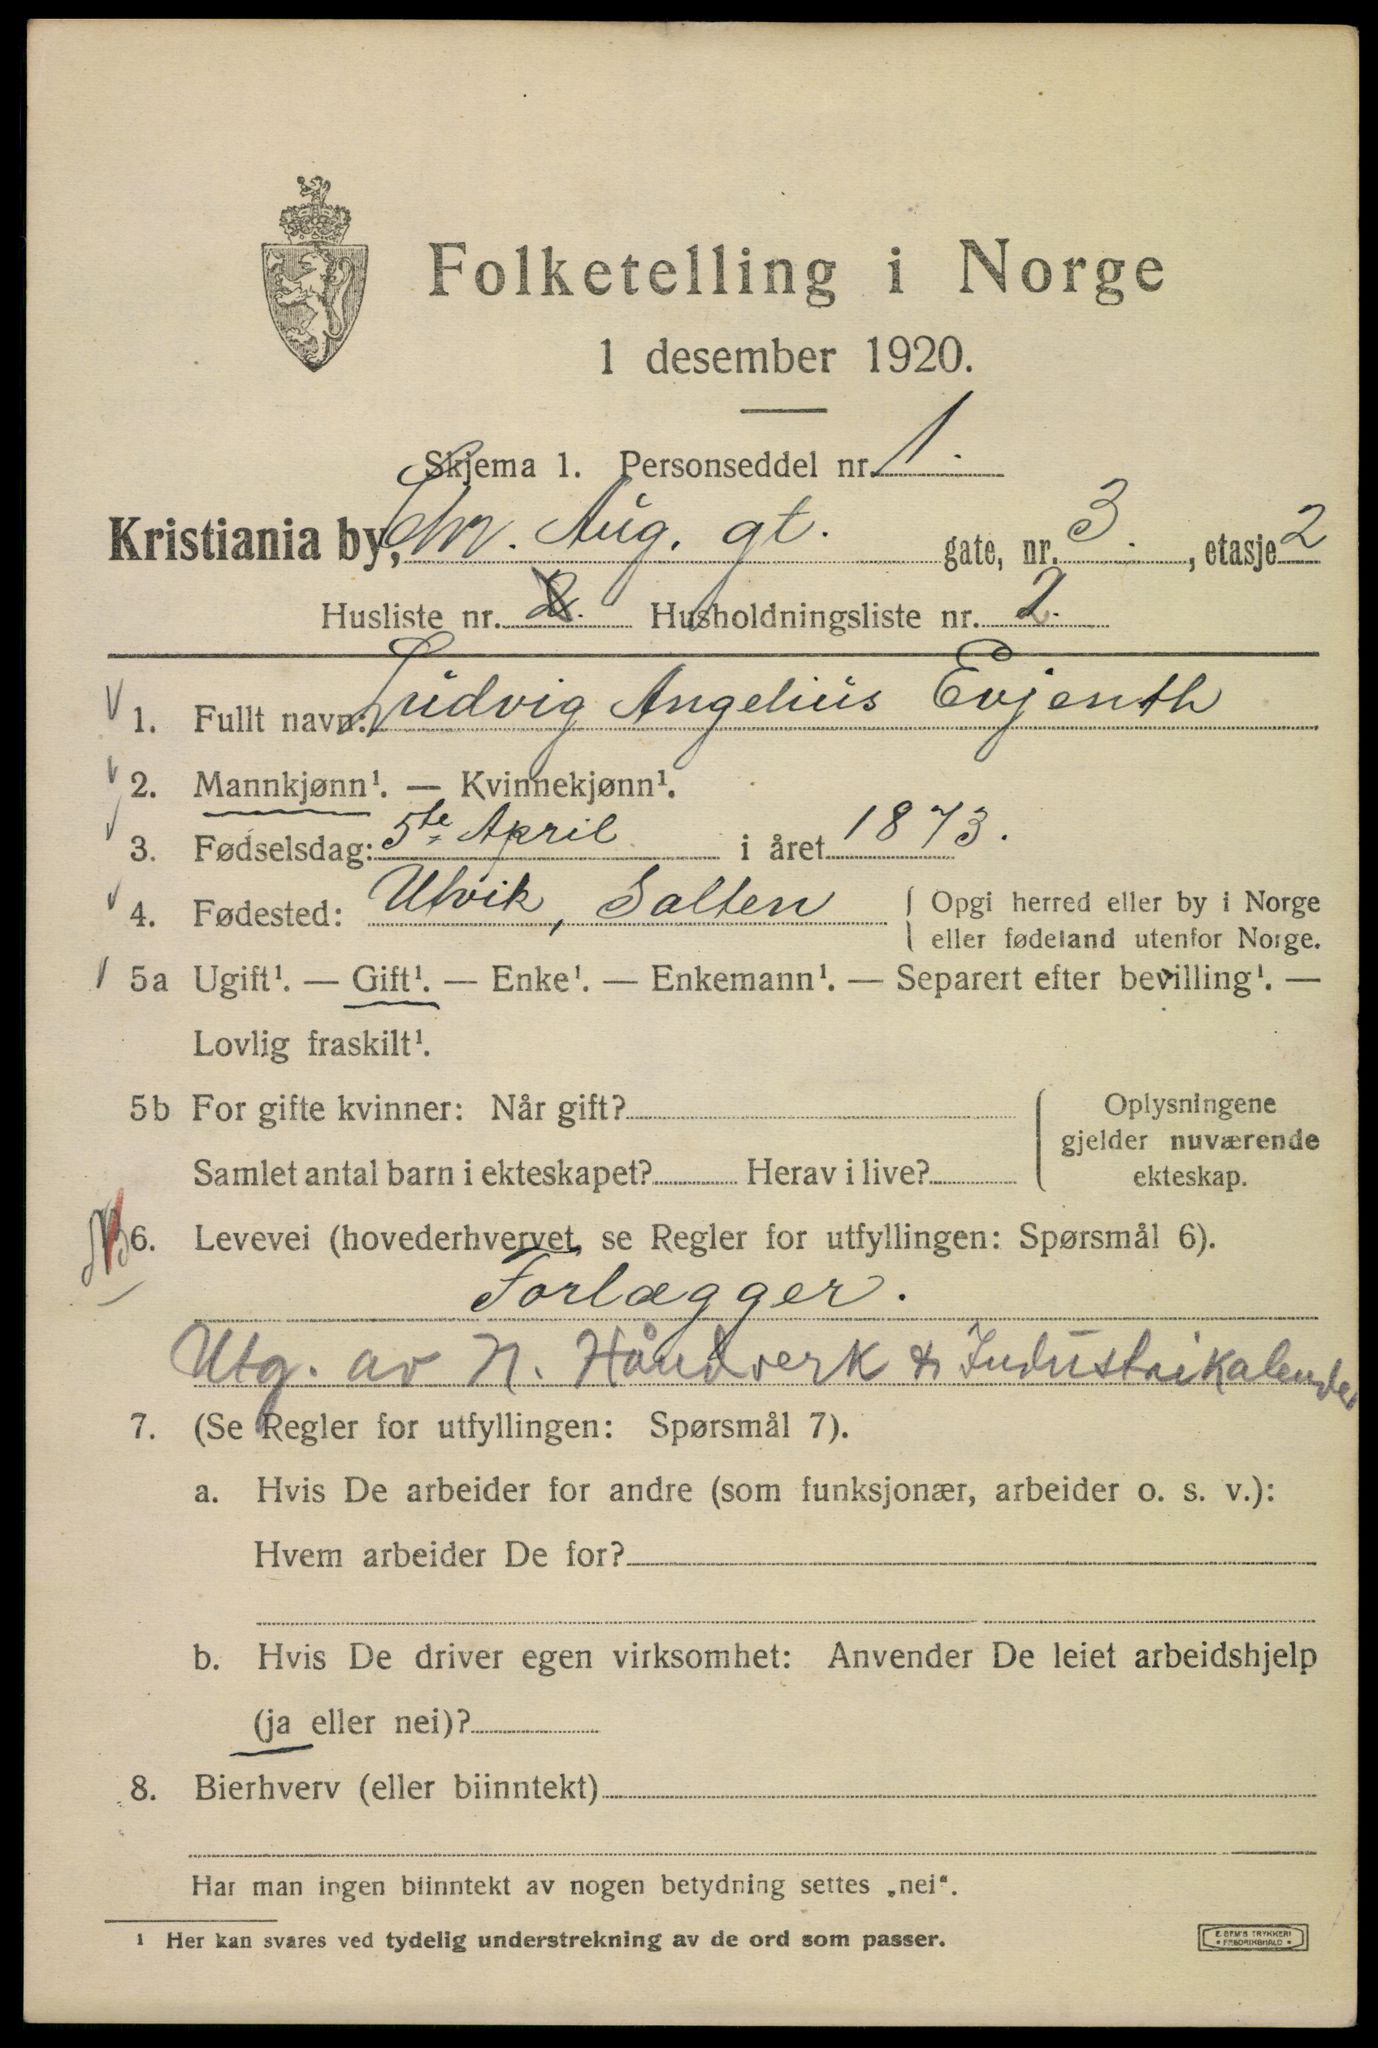 Folketelling i Norge
1 desember 1920.
Skjema 1. Personseddel nr. 1.
Kristiania by, Chr. Aug. gt. gate, nr. 3., etasje 2
Husliste nr. 2. Husholdningsliste nr. 2.
1. Fullt navn: Ludvig Angelius Evjenth
2. Mannkjønn¹. — Kvinnekjønn¹.
3. Fødselsdag: 5te April i året 1873.
4. Fødested: Utvik, Salten { Opgi herred eller by i Norge
eller fødeland utenfor Norge.
5a Ugift¹. — Gift¹. — Enke¹. — Enkemann¹. — Separert efter bevilling¹. —
Lovlig fraskilt¹.
5b For gifte kvinner: Når gift? { Oplysningene
gjelder nuværende
Samlet antal barn i ekteskapet? Herav i live? ekteskap.
6. Levevei (hovederhvervet, se Regler for utfyllingen: Spørsmål 6).
Forlægger.
Utg. av N. Håndverk & Industrikalender
7. (Se Regler for utfyllingen: Spørsmål 7).
a. Hvis De arbeider for andre (som funksjonær, arbeider o. s. v.):
Hvem arbeider De for?
b. Hvis De driver egen virksomhet: Anvender De leiet arbeidshjelp
(ja eller nei)?
8. Bierhverv (eller biinntekt)
Har man ingen biinntekt av nogen betydning settes „nei“.
¹ Her kan svares ved tydelig understrekning av de ord som passer.
E. SEM'S TRYKKERI
• FREDRIKSHALD •